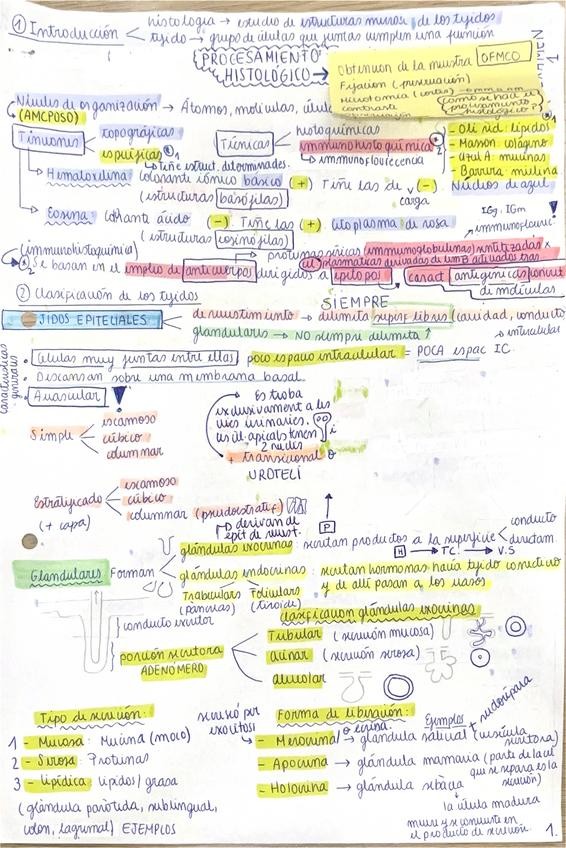 1 Introducción
histología → estudio de estructuras microsc. de los tejidos
tejido → grupo de células que juntas cumplen una función
PROCESAMIENTO
HISTOLÓGICO →
Obtención de la muestra OFMCO
Fijación (preservación)
Microtomía (cortes)
contraste
¿cómo se hace el
procesamiento
histológico?
1
Niveles de organización → Átomos, moléculas, célul
(AMCPOSO)
Tinciones
topográficas
específicas
↳ Tiñe estruct. determinadas.
Técnicas
histoquímicas
inmunohistoquímica
→ inmunoflourecencia
- Oil red: lípidos
- Masson: colágeno
- Azul A: mucinas
- Barrera: mielina
→ Hematoxilina: colorante iónico básico (+) Tiñe las de (-) Núcleos de azul
carga
(estructuras basófilas)
→ Eosina: colorante ácido (-). Tiñe las (+) citoplasma de rosa
(estructuras eosinófilas)
IGg, IGm
inmunofluoresc.
(inmunohistoquímica)
→ proteínas séricas (inmunoglobulinas) sintetizadas x
cél. plasmáticas derivadas de linf B activados tras
2 Se basan en el empleo de anticuerpos dirigidos a epítopos caract antigénicas
de moléculas
2 Clasificación de los tejidos
SIEMPRE
JIDOS EPITELIALES
de revestimiento → delimita superf libres (cavidad, conducto
glandulares → NO siempre delimita ↑
Características
generales
· Células muy juntas entre ellas poco espacio intracelular = POCA espac IC.
→ intercelular
· Descansan sobre una membrana basal.
· Avascular
Simple
escamoso
cúbico
columnar
Es troba
exclusivament a les
vies urinaries.
cèl·apicals tenen
2 nuclis
+ transicional o
UROTELI
Estratificado
(+ capa)
escamoso
cúbico
columnar (pseudoestratif.)
↱ derivan de
epit de revest.
P
Glandulares
Forman
glándulas exocrinas: secretan productos a la superficie
conducto
directam.
H → TC. → V.S
glándulas endocrinas: secretan hormonas hacia tejido conectivo
y de allí pasan a los vasos
Trabeculars
(páncreas)
Foliculars
(tiroide)
} conducto excretor
} porción secretora
ADENÓMERO
clasificación glándulas exocrinas
Tubular (secreción mucosa)
acinar (secreción serosa)
alveolar
Tipo de secreción:
1 - Mucosa: Mucina (moco)
2 - Serosa: Proteínas
3 - Lipídica: lípidos/grasa
(glándula parótida, sublingual,
colon, lagrimal) EJEMPLOS
secreció per
exocitosi
Forma de liberación:
Ejemplos
- Merocrina / o ecrina: → glándula salival + sudorípara
(vesícula
secretora)
- Apocrina → glándula mamaria (parte de la cel
que se separa es la
secreción)
- Holocrina → glándula sebácea
↳ la célula madura
muere y se convierte en
el producto de secreción.
1.